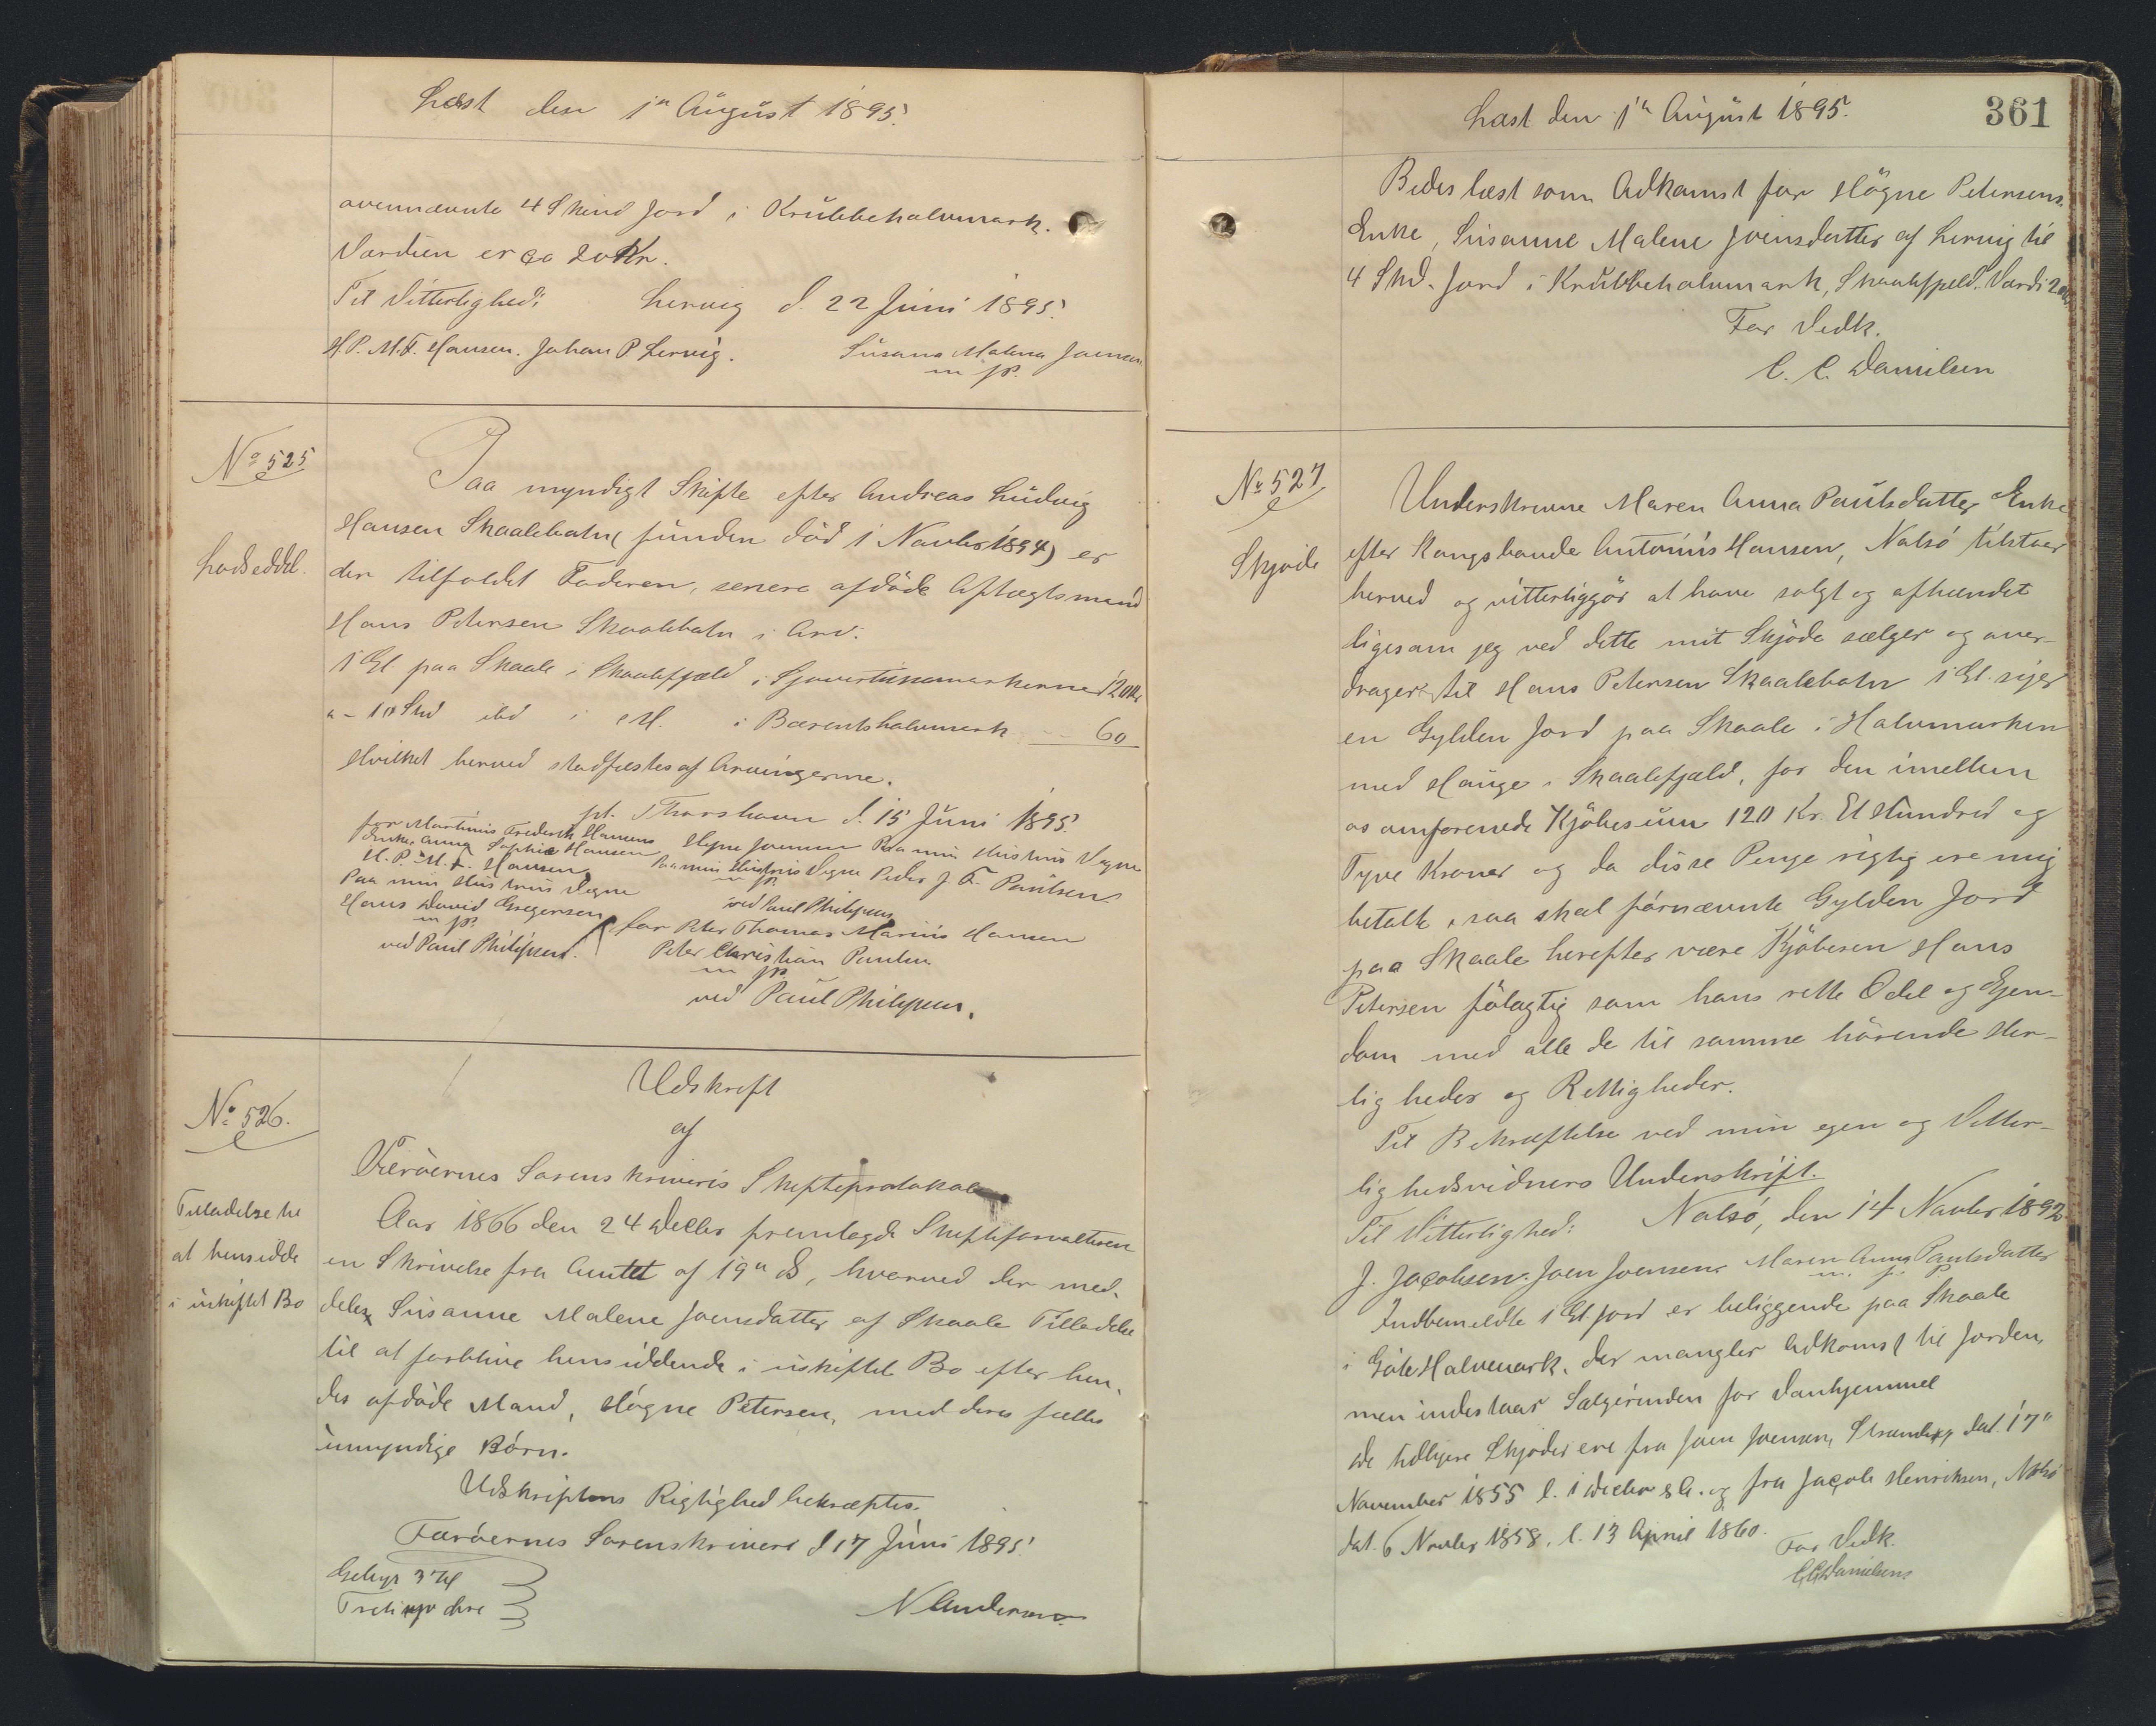 Læst den 1n August 1895.
ovennævnte 4 Skind Jord i Krubbehalvmark.
Værdien er ca 20 Kr.
Til Vitterlighed: Lervig d. 22 Juni 1895.
H.P. M.F. Hansen. Johan P Lervig. Susana Malena Joensen
m. p.
No 525
Lodseddel.
Paa myndigt Skifte efter Andreas Ludvig
Hansen Skaalebotn (funden død 1 Novbr 1894) er
der tilfaldet Faderen, senere afdøde Aftægtsmand
Hans Petersen Skaalebotn i Arv:
1 Gl. paa Skaale i Skaalefjæld i Gjovertunsmarkerne 120 Kr
a - 10 Skd ibd i Hf. i Bærentshalvmark - - 60
Hvilket herved stadfæstes af Arvingerne.
pt. Thorshavn d. 15 Juni 1895.
for Martinus Frederik Hansens
Enke Anna Sophie Hansen Høgne Joensen Paa min Hustrus Vegne
H. P. M. F. Hansen Paa min Hustrus Vegne Peder J. F. Paulsen
Paa min Hustrus Vegne m p.
Hans David Gregersen ved Paul Philipsen
m p. for Peter Thomas Marius Hansen
ved Paul Philipsen. Peter Christian Poulsen
m p.
ved Paul Philipsen.
No 526.
Tilladelse til
at hensidde
i uskiftet Bo
Udskrift
af
Færøernes Sorenskriveris Skifteprotokol
Aar 1866 den 24 Decbr fremlagde Skifteforvalteren
en Skrivelse fra Amtet af 19n ds, hvorved der med-
deles Susanne Malene Joensdatter af Skaale Tilladelse
til at forblive hensiddende i uskiftet Bo efter hen-
des afdøde Mand, Høgne Petersen, med deres fælles
umyndige Børn.
Udskriftens Rigtighed bekræftes.
Færøernes Sorenskriveri d 17 Juni 1895.
Gebyr
N Andersen
Læst den 1n August 1895. 361
Bedes læst som Adkomst for Høgne Petersens
Enke, Susanne Malene Joensdatter af Lervig til
4 Skd. Jord i Krubbehalvmark, Skaalefjeld. Værdi 20 Kr
For Vedk.
C. C. Danielsen
No 527
Skjøde
Underskrevne Maren Anna Paulsdatter Enke
efter Kongsbonde Antonius Hansen, Nolsø tilstaar
herved og vitterliggør at have solgt og afhændet
ligesom jeg ved dette mit Skjøde sælger og over-
drager til Hans Petersen Skaalebotn 1 Gl. siger
en Gylden Jord paa Skaale i Halvmarken
med Hauge i Skaalefjæld, for den imellem
os omforenede Kjøbesum 120 Kr. Et Hundred og
Tyve Kroner og da disse Penge rigtig ere mig
betalte, saa skal førnævnte Gylden Jord
paa Skaale herefter være Kjøberen Hans
Petersen følagtig som hans rette Odel og Ejen-
dom med alle de til samme hørende Her-
ligheder og Rettigheder.
Til Bekræftelse ved min egen og Vitter-
lighedsvidners Underskrift.
Til Vitterlighed: Nolsø, den 14 Novbr 1892
J. Jacobsen. Joen Joensen Maren Anna Paulsdatter
m. p.
Indbemeldte 1 Gl. Jord er beliggende paa Skaale
i Gøte Halvmark. der mangler Adkomst til Jorden,
men indestaar Sælgerinden for Vanhjemmel
de tidligere Skjøder ere fra Joen Joensen, dat. 17n
November 1855 l. 1 Decbr s A. og fra Jacob Henriksen, Nolsø
dat. 6 Novbr 1858, l. 13 April 1860. For Vedk.
C C Danielsen